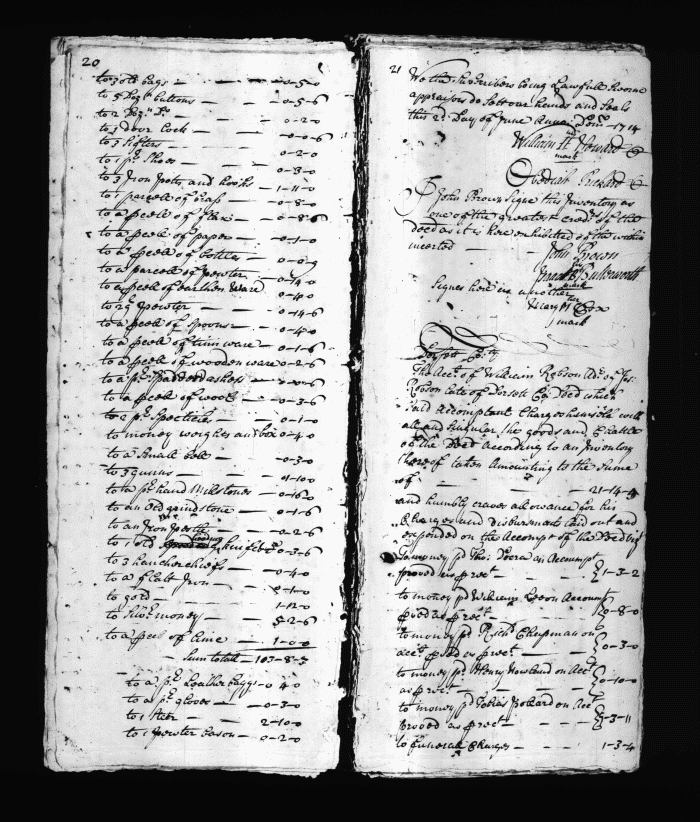 20
to 3 old bags — 0-5-0
to 5 Doz: buttons — 0-5-6
to 2 Doz: Do — 0-2-0
to 1 door Lock — 0-0-6
to 3 sifters — 0-2-0
to 1 pr: Shoes — 0-3-0
to 3 Iron potts and hooks — 1-11-0
to 1 parcele of brass — 0-8-0
to a pcele of — 0-8-6
to a pcele of paper — 0-1-0
to a pcele of bottles — 0-0-9
to a parcele of pewter — 0-14-0
to a pcele of earthen Ware — 0-4-0
to pewter — 0-14-6
to a pcele of Spoons — 0-4-0
to a pcele of tinn ware — 0-1-6
to a pcele of wooden ware 0-2-6
to a pr: Spadderdashes
to a pcele of wool — 0-3-6
to 2 pr: Specticles — 0-1-0
to money weights and box 0-4-0
to a Small — 0-3-0
to 3 gunns — 1-10-0
to a pr: hand Millstones — 0-16-0
to an Old grindstone — 0-1-6
to an Iron pestle — 0-2-6
to 1 old — 0-3-6
to 3 hancherchiefs — 0-4-0
to a flatt Iron — 2-1-0
to gold — 1-12-0
to Silvr: money — 5-2-6
to a pcel of Lime — 1-0-0
Sum totall — 103-8-
to a pr: Leather baggs — 0-4-0
to a pr: gloves — 0-3-0
to 1 — 2-10-0
to 1 pewter bason — 0-2-0
21
We the Subscribers being Lawfull Sworne
appraisors do Sett our hands and Seals
this 2d: Day of June Anno Dom: 1714
William H Howard
mark
Obediah
John Brown Signe this Inventory as
one of the greatest credrs: of the
deced as it is here exhibited of the within
incerted —
John Brown
Butterworth
mark
Signes here in another
her
Mary M Cox
mark
Dorsett Co: ss
The Acct: of William Robson Adr: of Jos:
Robson Late of Dorsett Co: Deced which
said accomptant Charges himselfe with
all and singular the goods and Chattles
of the Deced according to an Inventory
thereof taken amounting to the Sume
of — 21-14-4
and humbly craves allowance for his
Charges and Disbursmts: Laid out and
expended on the Accompt of the Deced
To money pd Tho: an Accompt
proved as prect — 1-3-2
to money pd William on Account
proved as prect — 0-8-0
to money pd Richd: Chapman on
acct: proved as prect — 0-3-0
to money pd: Henry on Acct
as prect — 0-10-0
to money pd Tobias Pollard on Acct
proved as prect — 3-11
to funerall Charges — 1-3-4